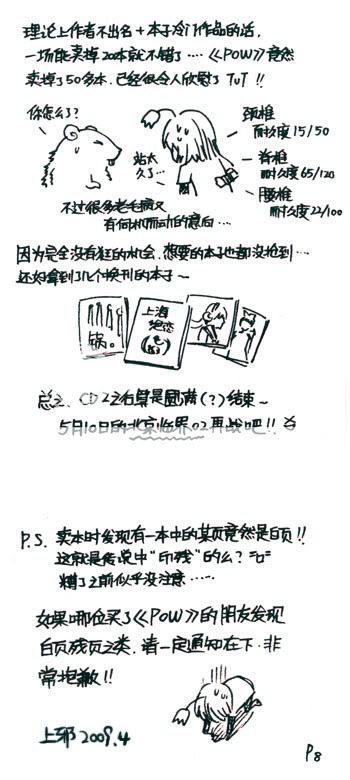 理论上作者不出名+本子冷门作品的话,
一场能卖掉20本就不错了……《POW》竟然
卖掉了50多本,已经很令人欣慰了 TuT !!
你怎么了?
颈椎
耐久度 15/50
站太
久了…
脊椎
耐久度 65/120
腰椎
耐久度 22/100
不过很多老毛病又
有伺机而动的意向…
因为完全没有逛的机会,想要的本子也都没抢到…
还好拿到了几个换刊的本子~
锅。
上海
绝恋
总之,CD 22右算是圆满(?)结束~
5月10日的北京临界02再战吧!!
P.S. 卖本时发现有一本中的某页竟然是白页!!
这就是传说中"印残"的么?
糟了之前似乎没注意……
如果哪位买了《POW》的朋友发现
白页残页之类,请一定通知在下.非
常抱歉!!
上邪 2009.4
P8